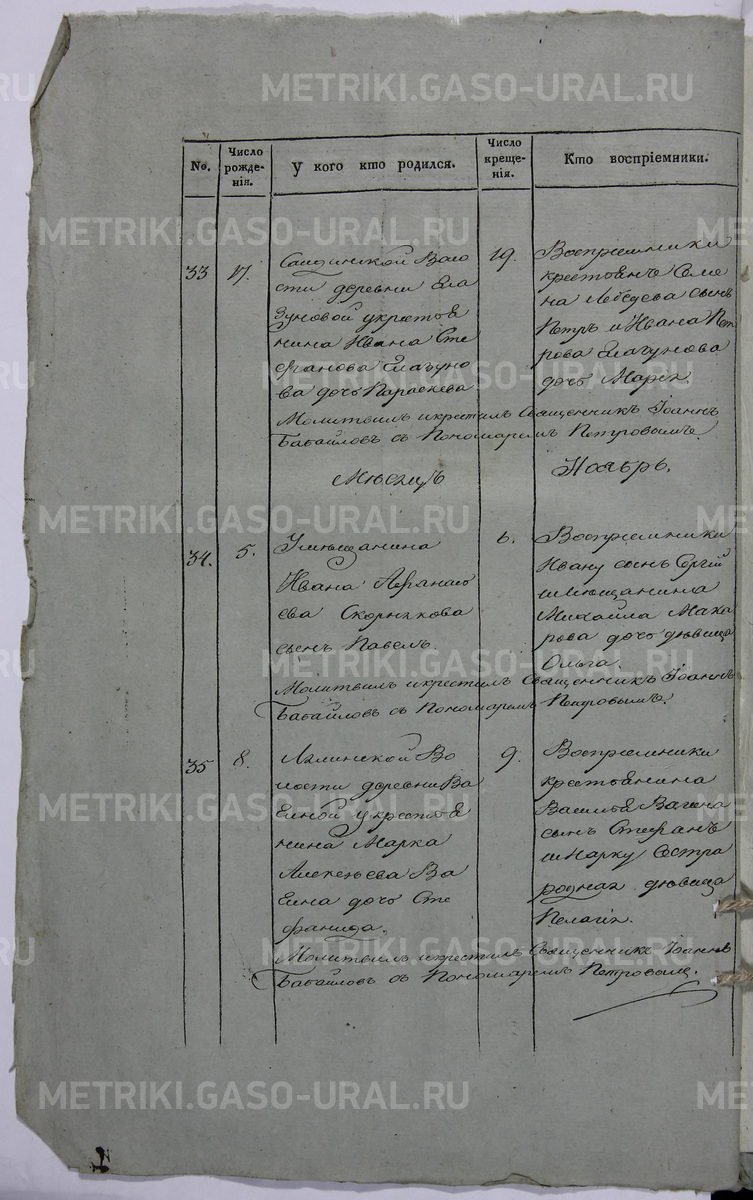 METRIKI.GASO-URAL.RU
№.
Число рожде-нія.
У кого кто родился.
Число креще-нія.
Кто воспріемники.
33
17.
Саидинской Воло
сти деревни Ела
гуновой у крестья
нина Ивана Сте
фанова Елагуно
ва дочь Параскева
19.
Восприемники
крестьянъ Семе
на Лебедева сынъ
Петръ и Ивана Пет
рова Елагунова
дочь Марія
Молитвилъ и крестилъ Священникъ Іоаннъ
Бабайловъ съ Пономаремъ Петровымъ.
Мѣсяцъ Ноябрь.
34.
5.
У мѣщанина
Ивана Афанась
ева Скорнякова
сынъ Павелъ.
6.
Восприемники
Ивану сынъ Сергій
и мѣщанина
Михайла Мака
рова дочь дѣвица
Ольга.
Молитвилъ и крестилъ Священникъ Іоаннъ
Бабайловъ съ Пономаремъ Петровымъ.
35
8.
Лялинской Во
лости деревни Ва
гиной у крестья
нина Марка
Алексѣева Ва
гина дочь Сте
фанида.
9.
Восприемники
крестьянина
Василья Вагина
сынъ Стефанъ
и Марку сестра
родная дѣвица
Пелагія.
Молитвилъ и крестилъ Священникъ Іоаннъ
Бабайловъ съ Пономаремъ Петровымъ.